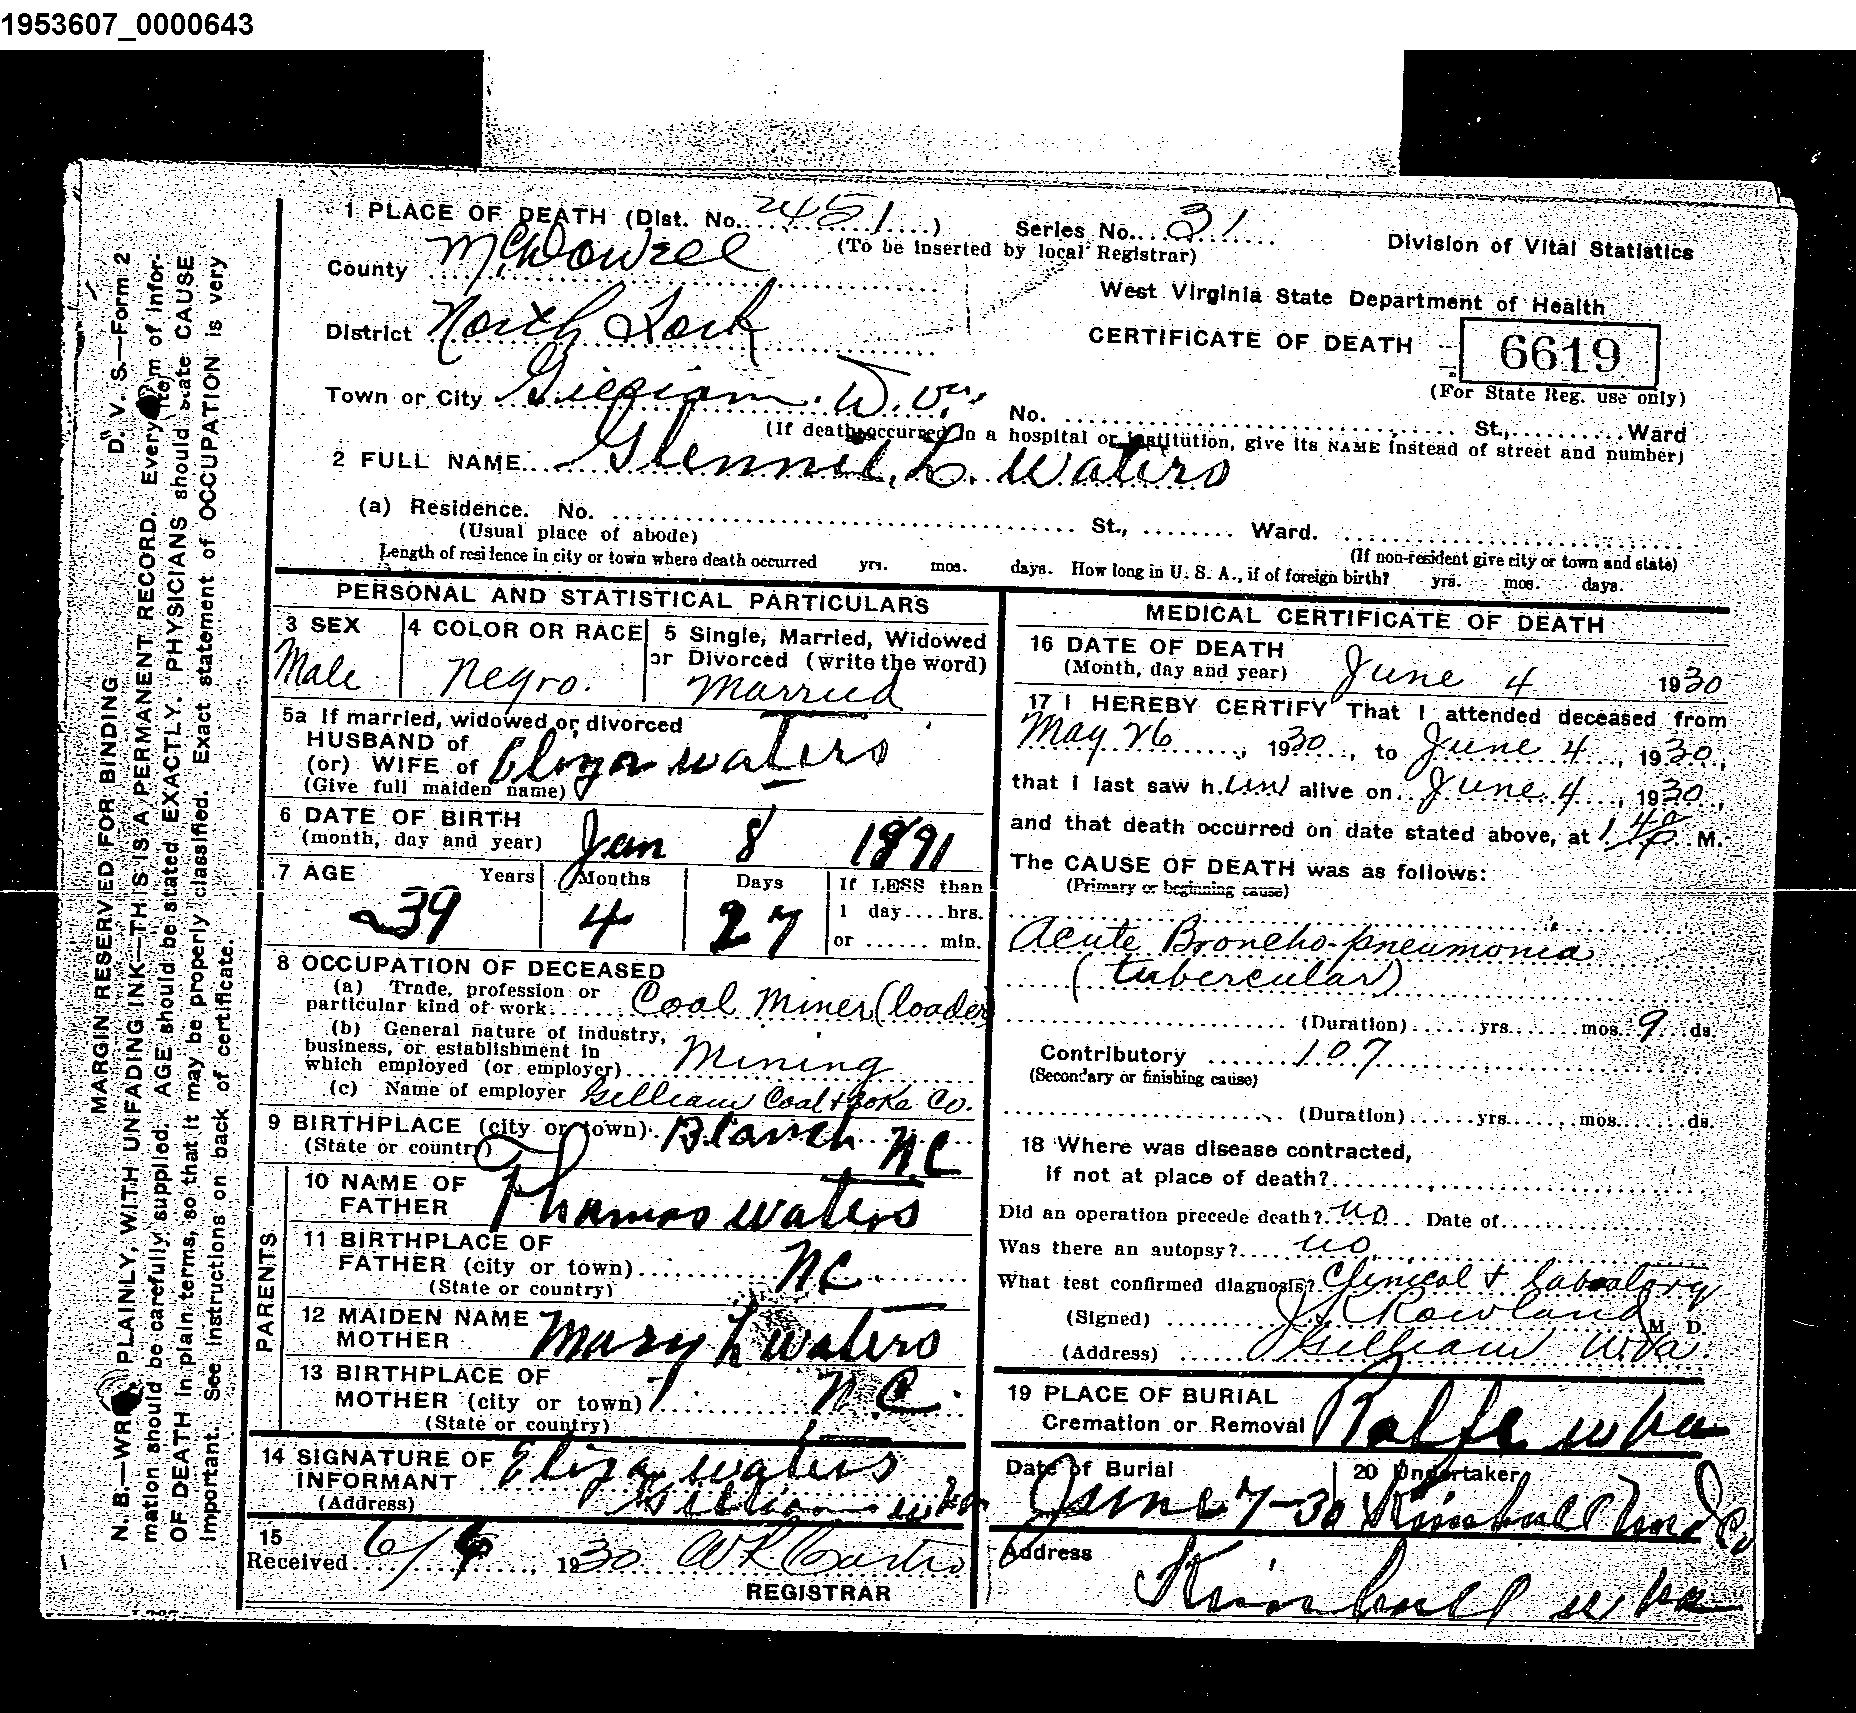 1953607_0000643
1 PLACE OF DEATH (Dist. No. 2451)
Series No. 31
(To be inserted by local Registrar)
Division of Vital Statistics
County McDowell
West Virginia State Department of Health
District North Fork
CERTIFICATE OF DEATH
6619
(For State Reg. use only)
Town or City Gilliam W. Va.
No. St., Ward
(If death occurred in a hospital or institution, give its NAME instead of street and number)
2 FULL NAME Glennie L. Waters
(a) Residence. No. St., Ward.
(Usual place of abode)
(If non-resident give city or town and state)
Length of residence in city or town where death occurred yrs. mos. days. How long in U. S. A., if of foreign birth? yrs. mos. days.
PERSONAL AND STATISTICAL PARTICULARS
3 SEX
Male
4 COLOR OR RACE
Negro.
5 Single, Married, Widowed
or Divorced (write the word)
Married
5a If married, widowed or divorced
HUSBAND of
(or) WIFE of waters
(Give full maiden name)
6 DATE OF BIRTH
(month, day and year) Jan 8 1891
7 AGE Years Months Days If LESS than
39 4 27 1 day....hrs.
or ...... min.
8 OCCUPATION OF DECEASED
(a) Trade, profession or
particular kind of work Coal Miner (loader)
(b) General nature of industry,
business, or establishment in
which employed (or employer) Mining
(c) Name of employer Gilliam Coal & Coke Co.
9 BIRTHPLACE (city or town) Blanch NC
(State or country)
PARENTS
10 NAME OF
FATHER Thomas waters
11 BIRTHPLACE OF
FATHER (city or town) NC
(State or country)
12 MAIDEN NAME
MOTHER Mary L waters
13 BIRTHPLACE OF
MOTHER (city or town) N.C.
(State or country)
14 SIGNATURE OF
INFORMANT Eliza waters
(Address) Gilliam w va
15
Received 6/ 1930
REGISTRAR
MEDICAL CERTIFICATE OF DEATH
16 DATE OF DEATH
(Month, day and year) June 4 1930
17 I HEREBY CERTIFY That I attended deceased from
May 26, 1930, to June 4, 1930,
that I last saw h im alive on June 4, 1930,
and that death occurred on date stated above, at M.
The CAUSE OF DEATH was as follows:
(Primary or beginning cause)
Acute Broncho-pneumonia
(tubercular)
(Duration) yrs. mos. 9 ds.
Contributory 107
(Secondary or finishing cause)
(Duration) yrs. mos. ds.
18 Where was disease contracted,
if not at place of death?
Did an operation precede death? no Date of
Was there an autopsy? no.
What test confirmed diagnosis? Clinical & Laboratory
(Signed) Rowland M. D.
(Address) Gilliam W Va
19 PLACE OF BURIAL
Cremation or Removal Rolfe w va
Date of Burial
June 7-30
20 Undertaker
Kimball Co
Address
Kimball w va
MARGIN RESERVED FOR BINDING
D. V. S.—Form 2
N. B.—WRITE PLAINLY, WITH UNFADING INK—THIS IS A PERMANENT RECORD. Every item of infor-
mation should be carefully supplied. AGE should be stated EXACTLY. PHYSICIANS should state CAUSE
OF DEATH in plain terms, so that it may be properly classified. Exact statement of OCCUPATION is very
important. See instructions on back of certificate.